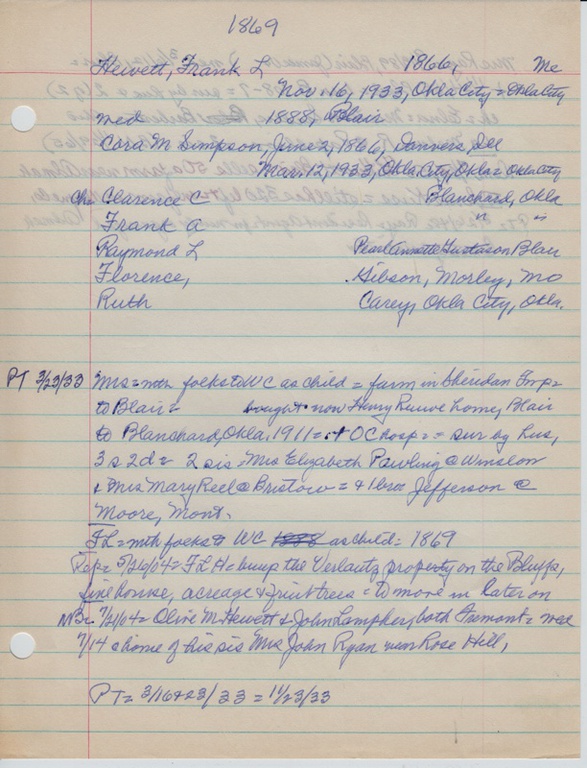 1869
Hewett, Frank L 1866, Me
Nov. 16, 1933, Okla City = Okla City
wed 1888, Blair
Cora M Simpson, June 2, 1866, Danvers, Ill
Mar. 12, 1933, Okla City, Okla = Okla City
Ch = Clarence C = Blanchard, Okla
Frank A " "
Raymond L Pearl Annette Gustason Blair
Florence, Gibson, Morley, Mo
Ruth Carey, Okla City, Okla.
PT 3/23/33 Mrs = mth folks to WC as child = farm in Sheridan Twp =
to Blair = bought now Henry home, Blair
to Blanchard, Okla. 1911 = + OC hosp = = sur by hus,
3 s 2 d = 2 sis = Mrs Elizabeth Pawling @ Winslow
& Mrs Mary Reel @ Bristow = & 1 bro Jefferson @
Moore, Mont.
FL = mth folks to WC 1888 as child = 1869
Rep = 5/26/04 = FLH = the property on the Bluffs,
fine house, acreage & fruit trees = to move in later on
7/21/04 = Olive M Hewett & John Lamphey, both Fremont = wed
7/14 @ home of his sis Mrs John Ryan near Rose Hill,
PT = 3/16 & 23/33 = 11/23/33